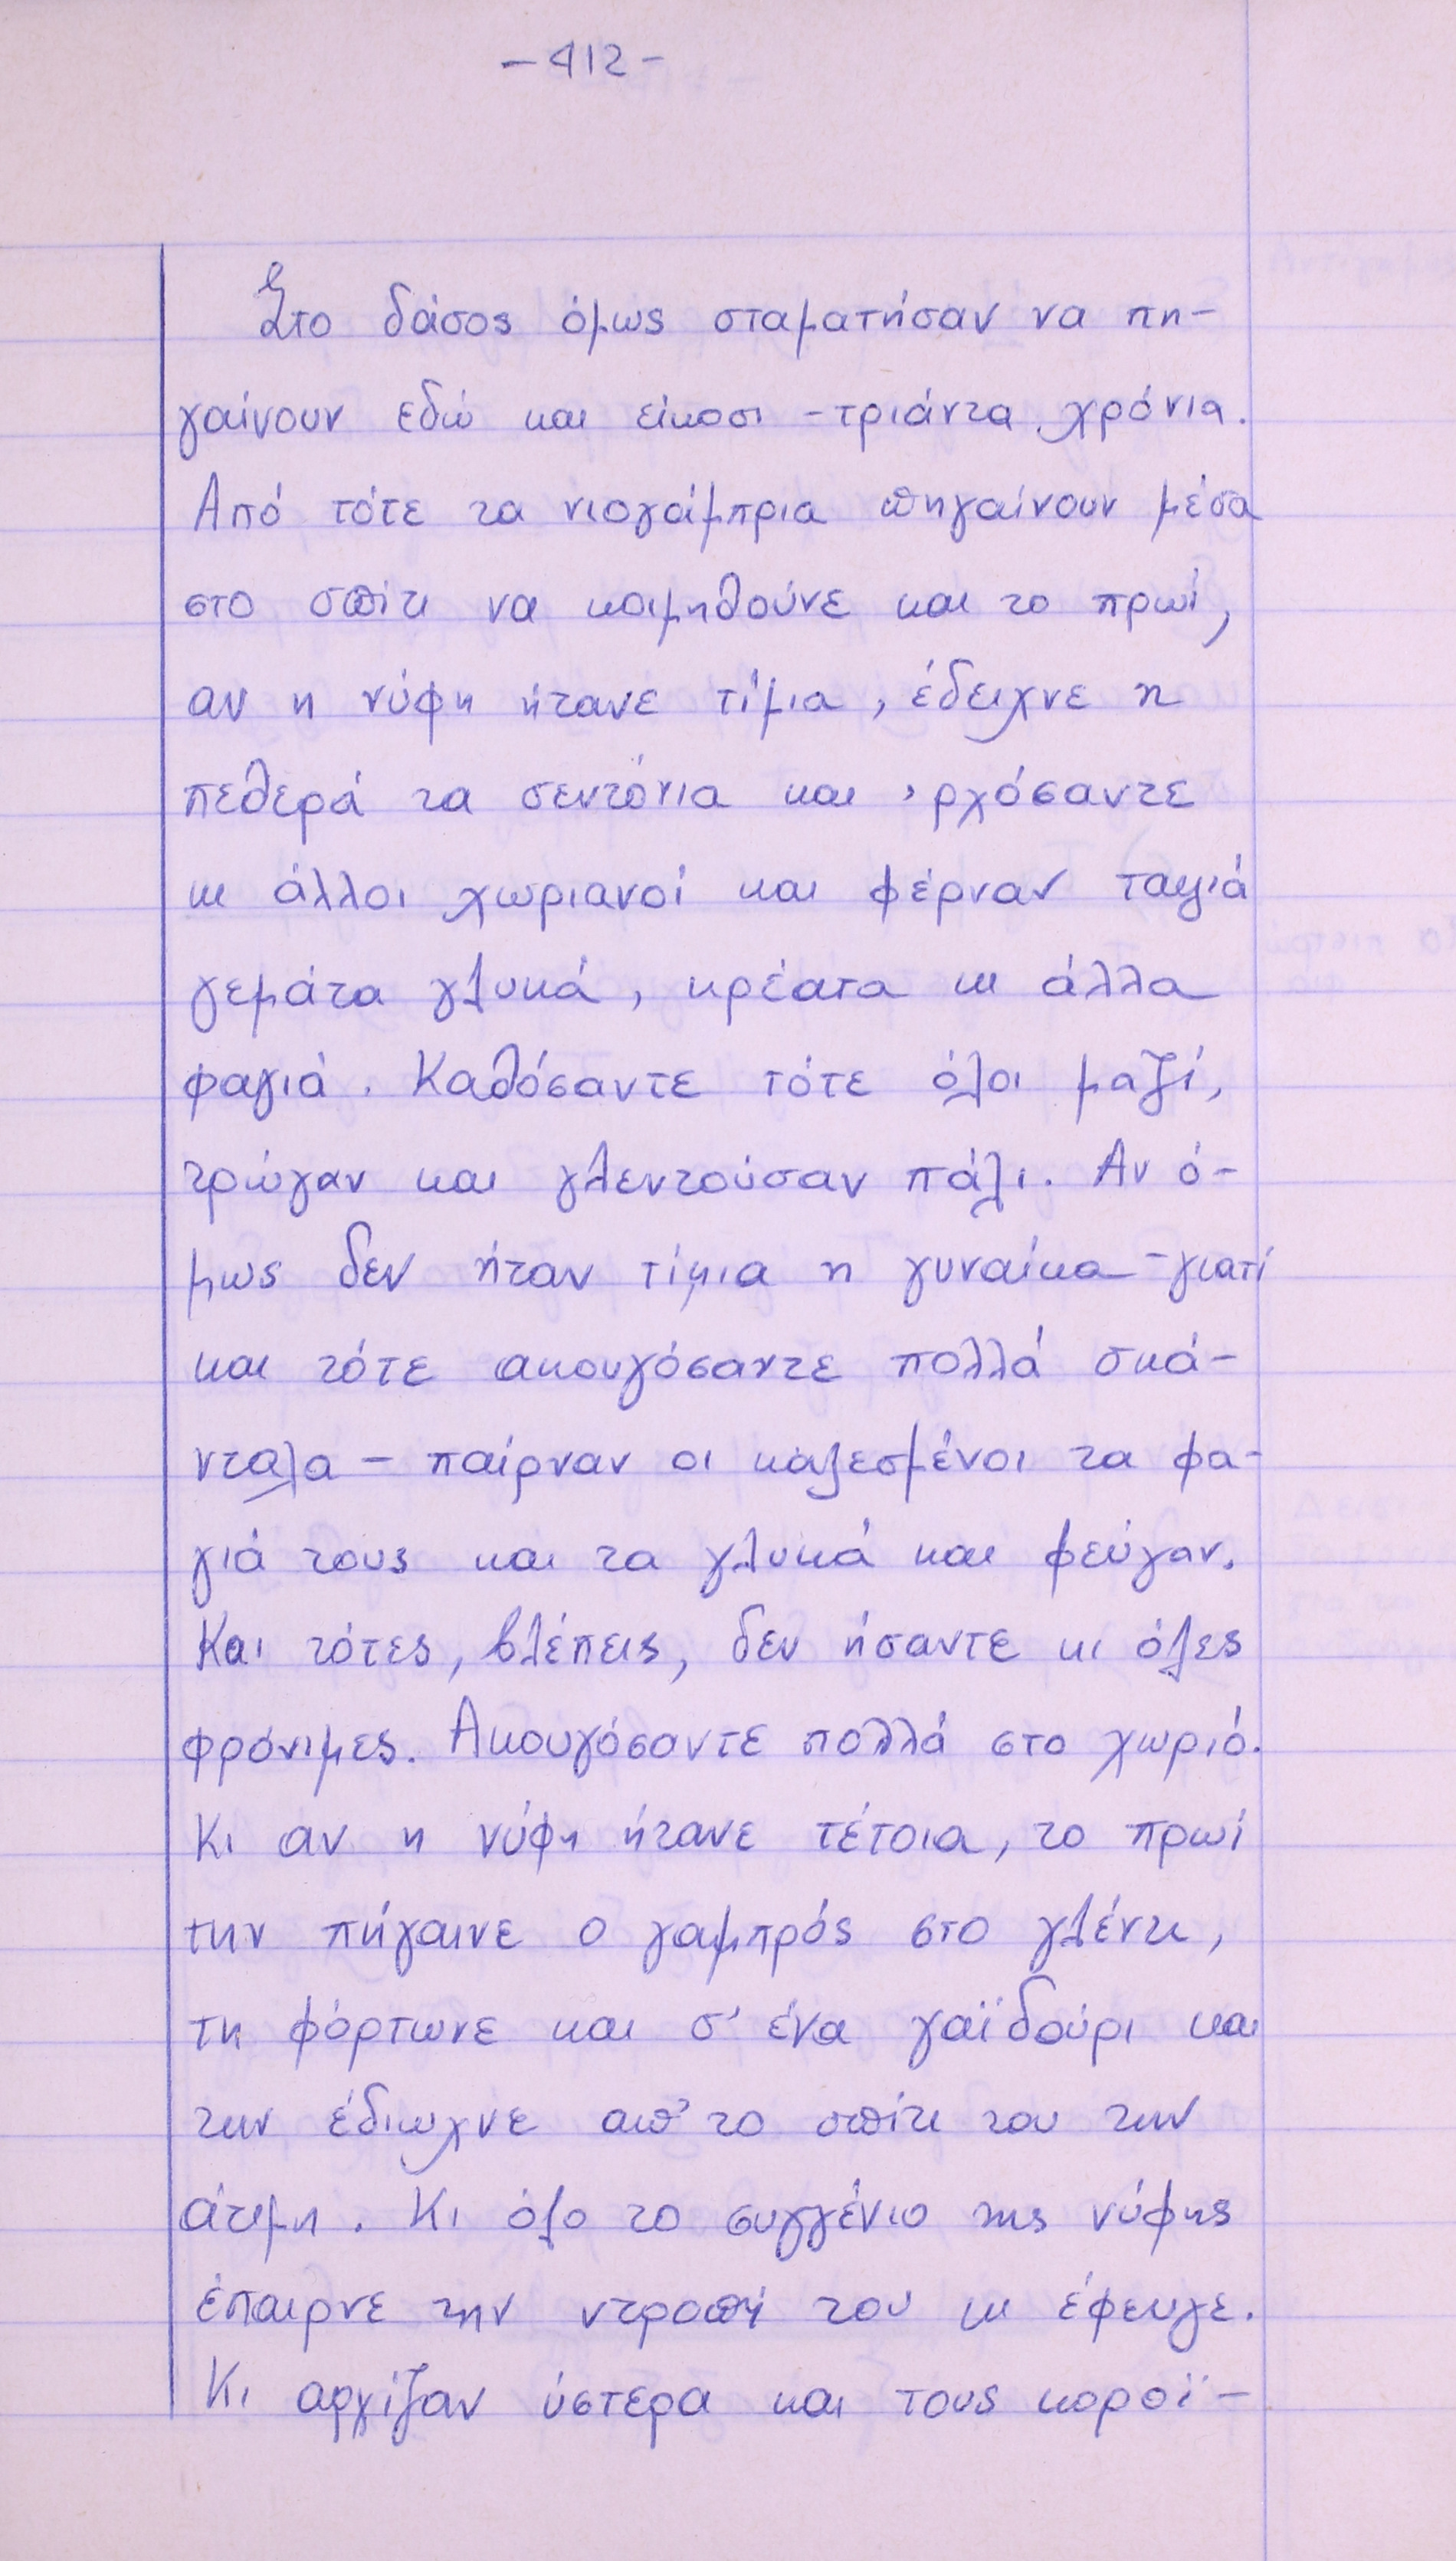 -412-
Στο δάσος όμως σταματήσαν να πη-
γαίνουν εδώ και είκοσι -τριάντα χρόνια.
Από τότε τα νιογάμπρια πηγαίνουν μέσα
στο σπίτι να κοιμηθούνε και το πρωί,
αν η νύφη ήτανε τίμια, έδειχνε η
πεθερά τα σεντόνια και 'ρχόσαντε
κι άλλοι χωριανοί και φέρναν ταψιά
γεμάτα γλυκά, κρέατα κι άλλα
φαγιά. Καθόσαντε τότε όλοι μαζί,
τρώγαν και γλεντούσαν πάλι. Αν ό-
μως δεν ήταν τίμια η γυναίκα -γιατί
και τότε ακουγόσαντε πολλά σκά-
νταλα - παίρναν οι καλεσμένοι τα φα-
γιά τους και τα γλυκά και φεύγαν.
Και τότες, βλέπεις, δεν ήσαντε κι όλες
φρόνιμες. Ακουγόσαντε πολλά στο χωριό.
Κι αν η νύφη ήτανε τέτοια, το πρωί
την πήγαινε ο γαμπρός στο γλέντι,
τη φόρτωνε και σ' ένα γαϊδούρι και
την έδιωχνε απ' το σπίτι του την
άτιμη. Κι όλο το συγγένιο της νύφης
έπαιρνε την ντροπή του κι έφευγε.
Κι αρχίζαν ύστερα και τους κοροϊ-